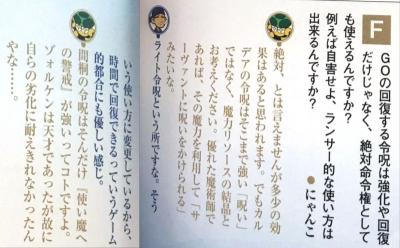 FGOの回復する令呪は強化や回復
だけじゃなく、絶対命令権として
も使えるんですか?
例えば自害せよ、ランサー的な使い方は
出来るんですか?
●にゃんこ
絶対、とは言えませんが多少の効
果はあると思われます。でもカル
デアの令呪はそこまで強い「呪い」
ではなく、魔力リソースの結晶と
お考えください。優れた魔術師で
あれば、その魔力を利用して「サ
ーヴァントに呪いをかけられる」
みたいな。
ライト令呪という所ですな。そう
いう使い方に変更しているから、
時間で回復できるっていうゲーム
的都合にも優しい感じ。
間桐の令呪はそんだけ『使い魔へ
の警戒』が強いってコトですよ。
ゾォルケンは天才であったが故に
自らの劣化に耐えきれなかったん
やな……。